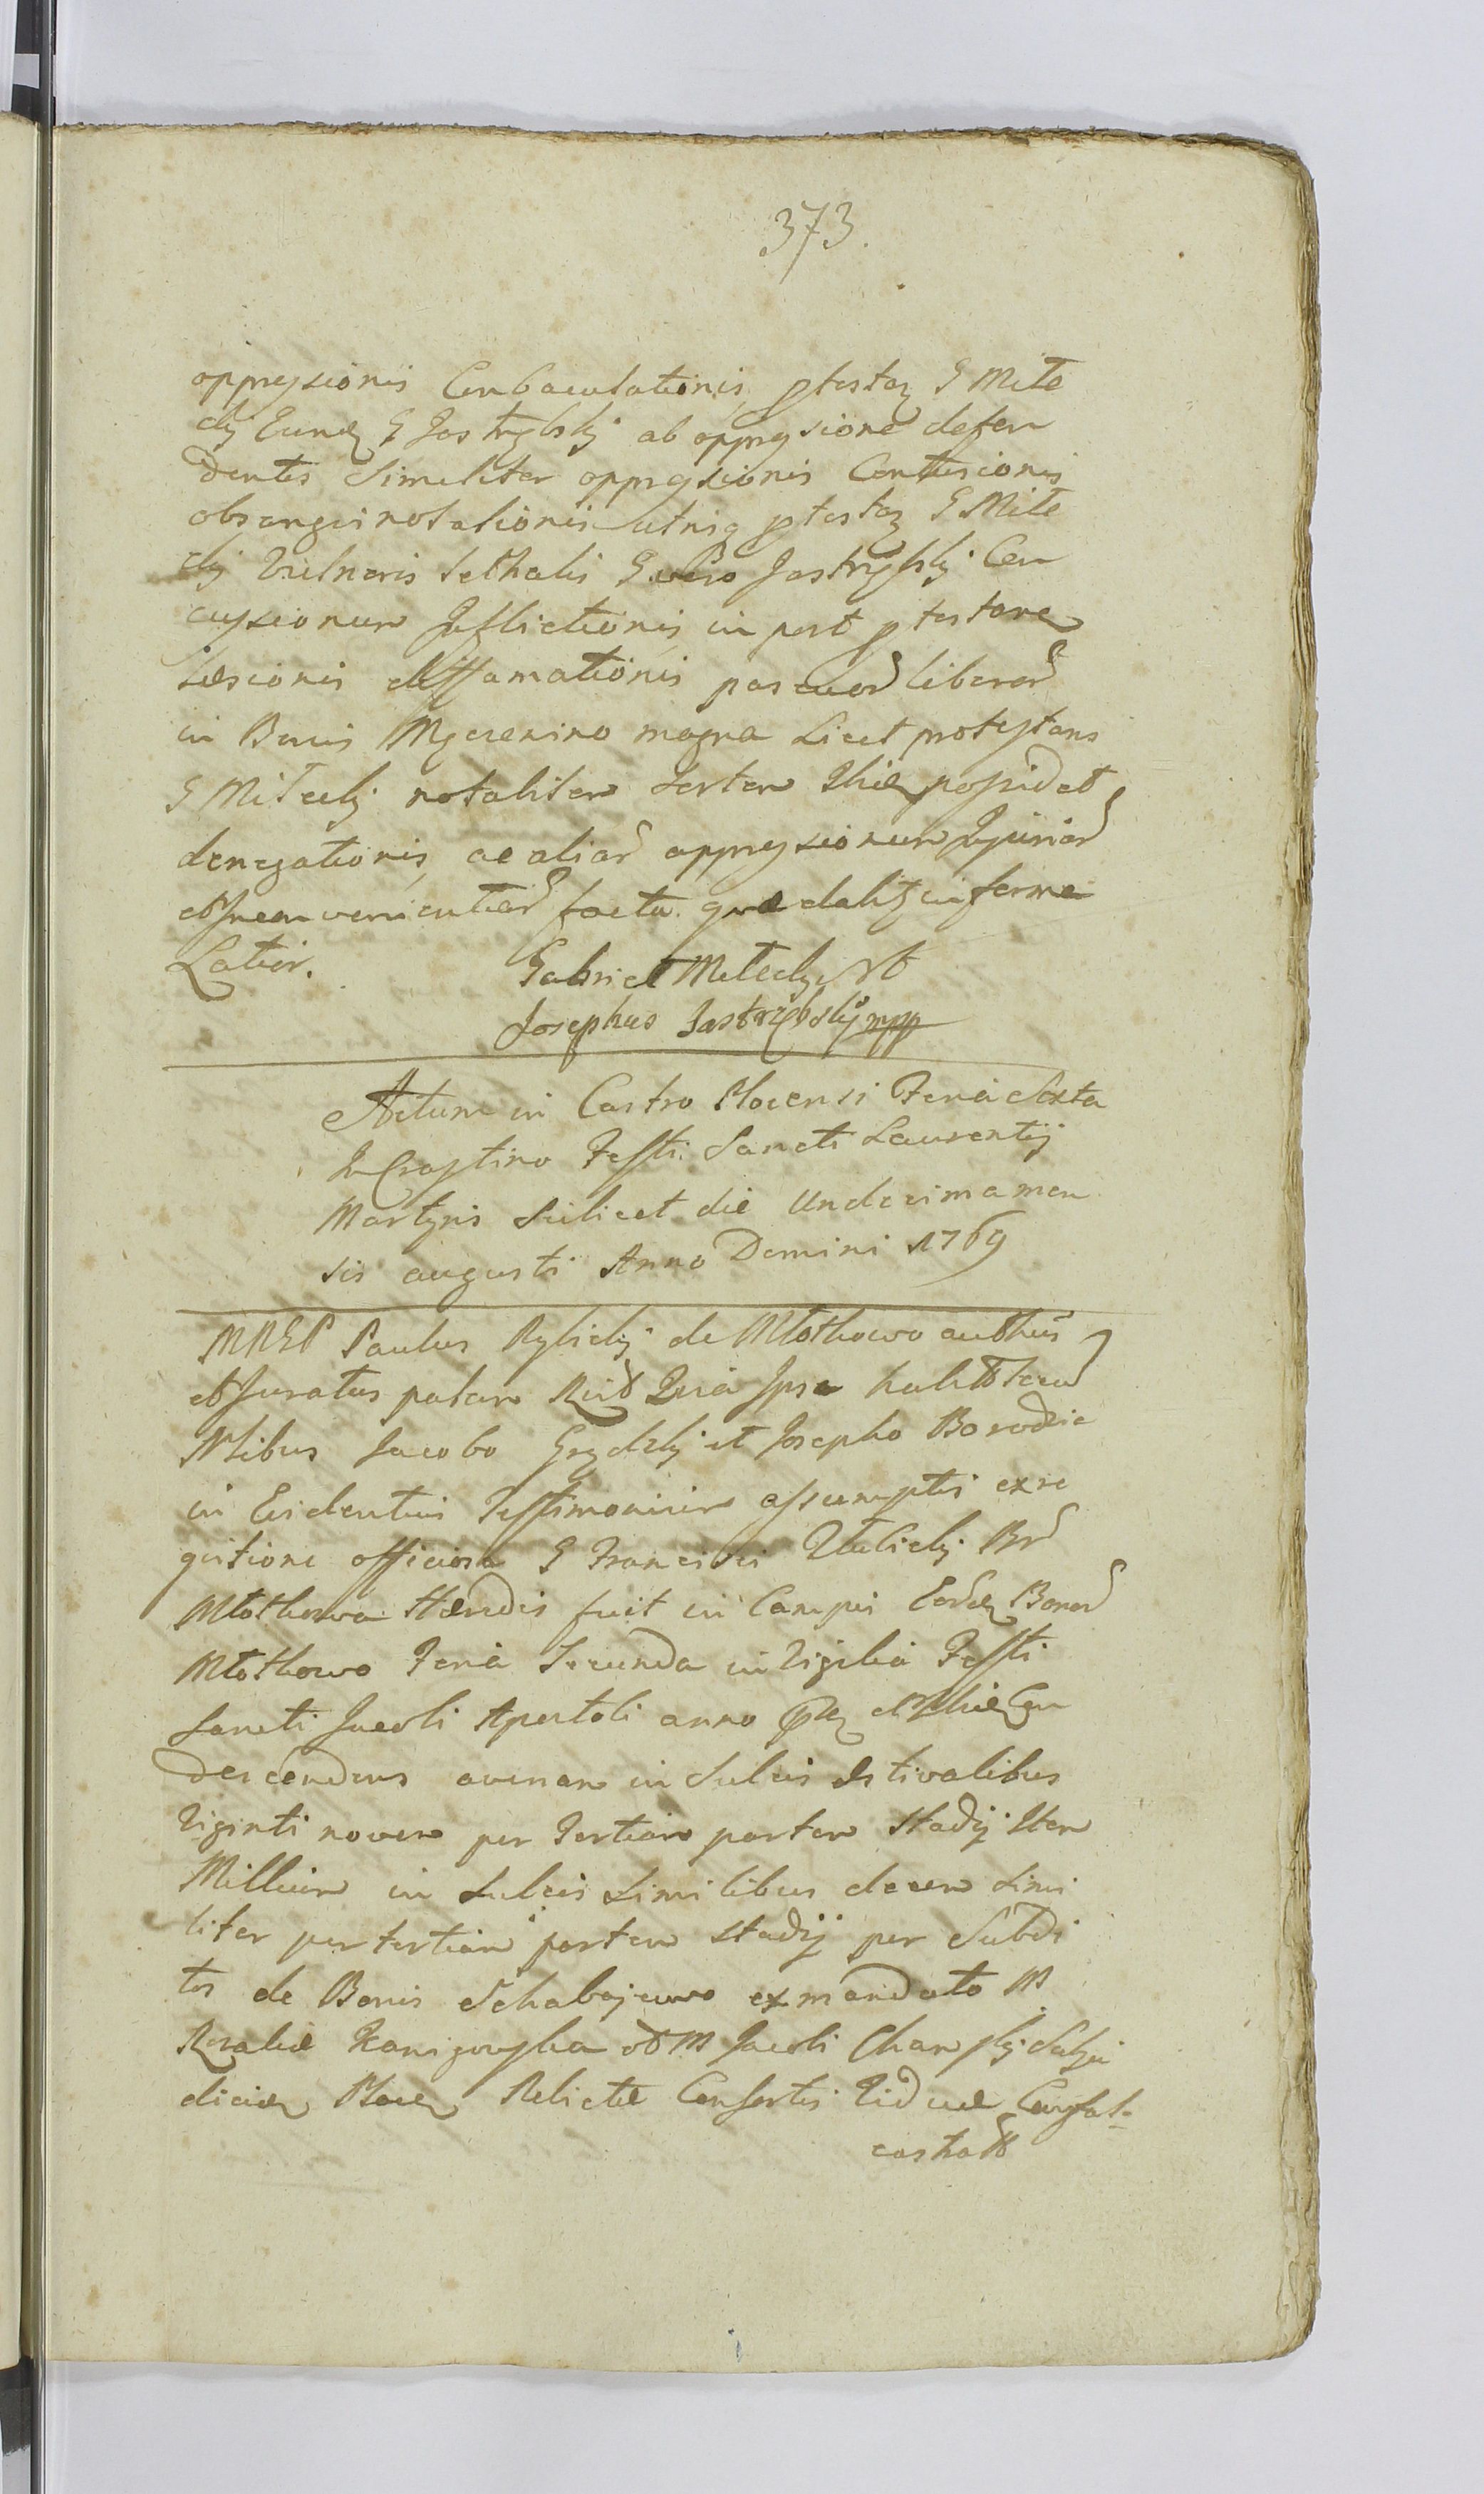 373.
oppressionis Conbaculationis ptestaz G Mite
ckj Eund G Jastrzbskj ab oppressione defen
dentis Similiter oppressionis Contusionis
obsanguinolationis utriq ptestaz G Mite
ckj Vulneris lethalis G vero Jastrzbskj Con
cussionum Inflictionis in post ptestone
Læsionis diffamationis pascuor liberor
in Bonis magna Licet protestans
G Miteckj notabilem Sortem Ibid possidet
denegationis ac aliar oppressionum Injuriar
et Inconvenientiar facta. quæ dabitz in forma
Latior. Gabriel Miteckj
Josephus Jastrzębskÿ mpp
Actum in Castro Plocensi Feria Sexta
In Crastino Festi Sancti Laurentij
Martyris Scilicet die Undecima men
sis augusti Anno Domini 1769
Paulus Rybickj de Młotkowo authus
et Juratus palam Quia Ipse
Nlibus Jacobo et Josepho
in Evidentius Testimonium assumptis exre
quisitione officiosa G Francisci
Młotkowo Hæredis fuit in Campis Eord Bonor
Młotkowo Feria Secunda in Vigilia Festi
Sancti Jacobi Apostoli anno et Ibid Con
descendens avenam in Sulcis æstivalibus
Viginti novem per Tertiam partem Stadij Item
Millium in Sulcis Similibus decem Simi
liter per tertiam partem Stadij per Subdi
tos de Bonis Schabajewo ex mandato M
Rosaliæ M Jacobi
Relictæ Consortis Viduæ